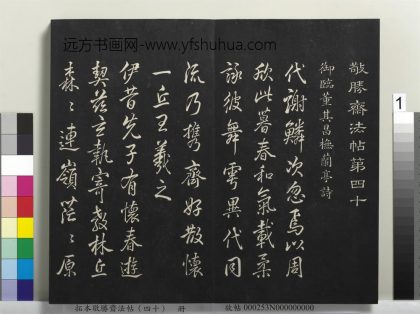 远方书画网-www.yfshuhua.com
敬勝齋法帖第四十
御臨董其昌橅蘭亭詩
代謝鱗次忽焉以周
欣此暮春和氣載柔
詠彼舞雩異代同
流乃携齊好散懷
一丘王羲之
伊昔先子有懷春遊
契茲言執寄敖林丘
森〻連嶺茫〻原
1
拓本敬勝齋法帖（四十） 冊
故帖 000253N000000000